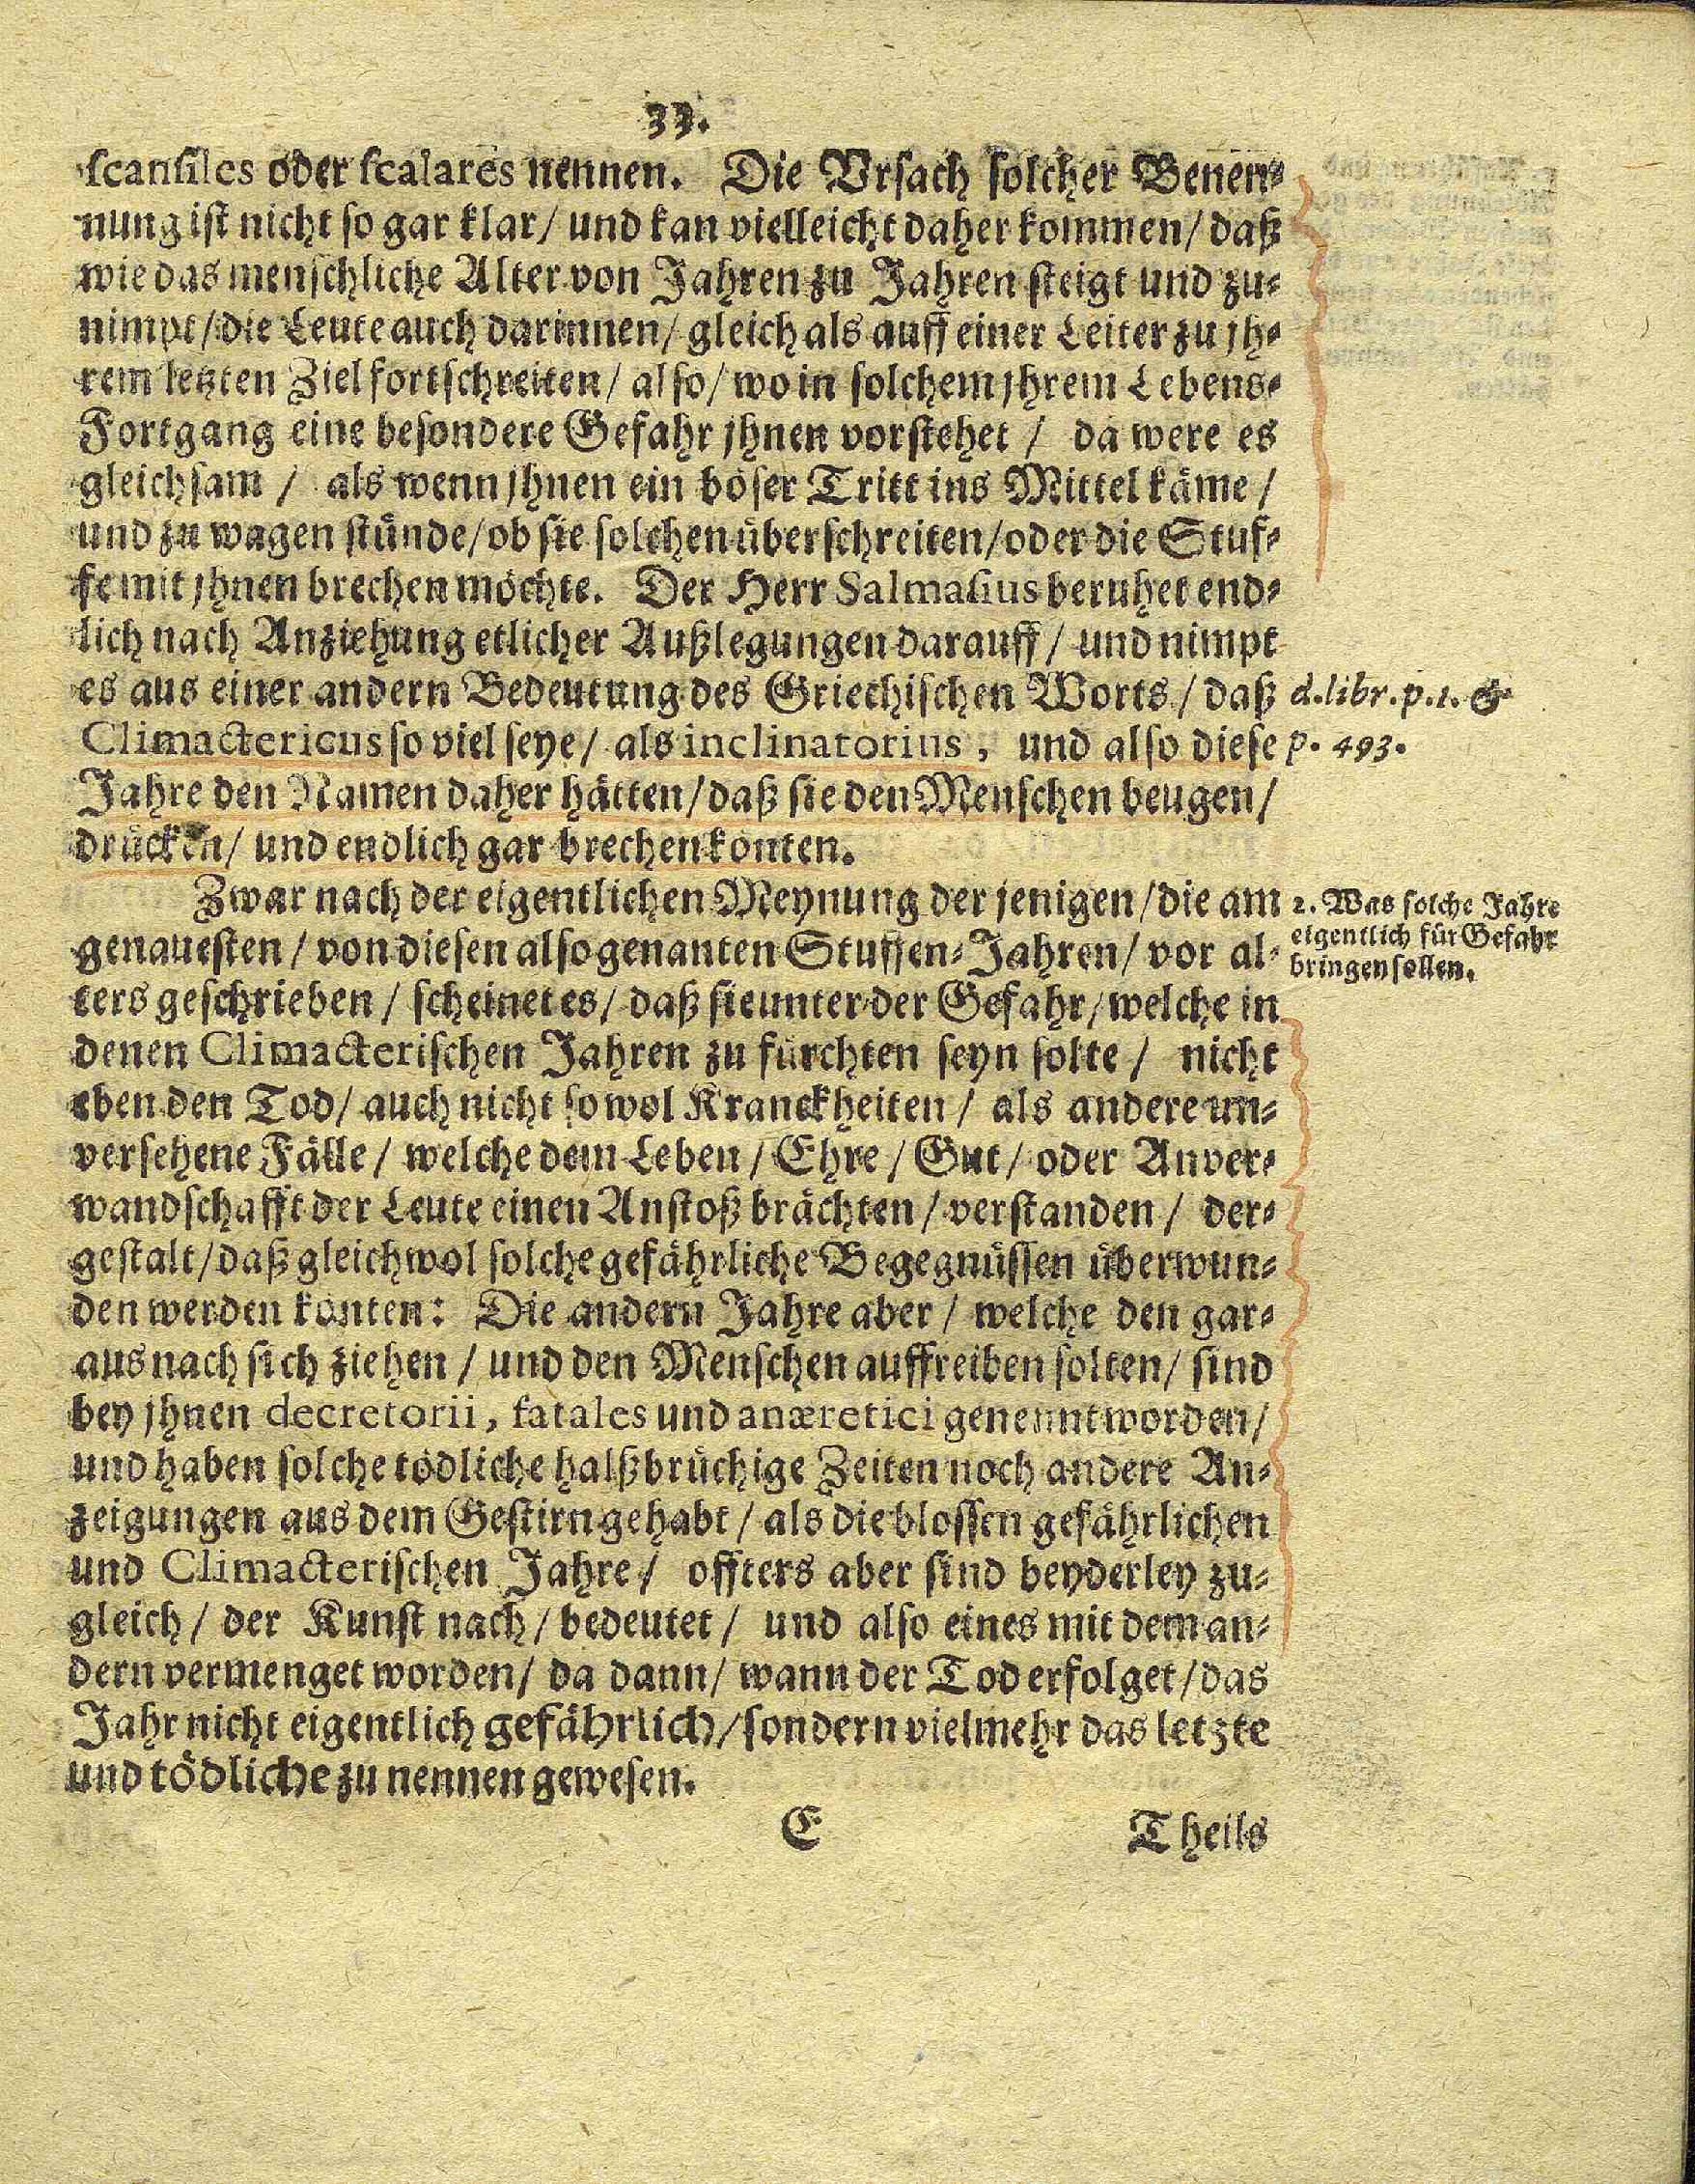 33.
scansiles oder scalares nennen. Die Vrsach solcher Benen-
nung ist nicht so gar klar/ und kan vielleicht daher kommen/ daß
wie das menschliche Alter von Jahren zu Jahren steigt und zu-
nimpt/ die Leute auch darinnen/ gleich als auff einer Leiter zu jh-
rem letzten Ziel fortschreiten/ also/ wo in solchem jhrem Lebens-
Fortgang eine besondere Gefahr jhnen vorstehet / da were es
gleichsam / als wenn jhnen ein böser Tritt ins Mittel käme /
und zu wagen stünde/ ob sie solchen überschreiten/ oder die Stuf-
fe mit jhnen brechen möchte. Der Herr Salmasius beruhet end-
lich nach Anziehung etlicher Außlegungen darauff/ und nimpt
es aus einer andern Bedeutung des Griechischen Worts/ daß
d. libr. p. 1. &
Climactericus so viel seye/ als inclinatorius, und also diese
p. 493.
Jahre den Namen daher hätten/ daß sie den Menschen beugen/
drücken/ und endlich gar brechen könten.
Zwar nach der eigentlichen Meynung der jenigen/ die am
2. Was solche Jahre
eigentlich für Gefahr
bringen sollen.
genauesten/ von diesen also genanten Stuffen-Jahren/ vor al-
ters geschrieben/ scheinet es/ daß sie unter der Gefahr/ welche in
denen Climacterischen Jahren zu fürchten seyn solte / nicht
eben den Tod/ auch nicht so wol Kranckheiten / als andere un-
versehene Fälle/ welche dem Leben/ Ehre/ Gut/ oder Anver-
wandschafft der Leute einen Anstoß brächten/ verstanden/ der-
gestalt/ daß gleichwol solche gefährliche Begegnüssen überwun-
den werden könten: Die andern Jahre aber/ welche den gar-
aus nach sich ziehen / und den Menschen auffreiben solten/ sind
bey jhnen decretorii, fatales und anæretici genennt worden/
und haben solche tödliche halßbrüchige Zeiten noch andere An-
zeigungen aus dem Gestirn gehabt / als die blossen gefährlichen
und Climacterischen Jahre/ offters aber sind beyderley zu-
gleich/ der Kunst nach/ bedeutet/ und also eines mit dem an-
dern vermenget worden/ da dann/ wann der Tod erfolget/ das
Jahr nicht eigentlich gefährlich/ sondern vielmehr das letzte
und tödliche zu nennen gewesen.
E
Theils